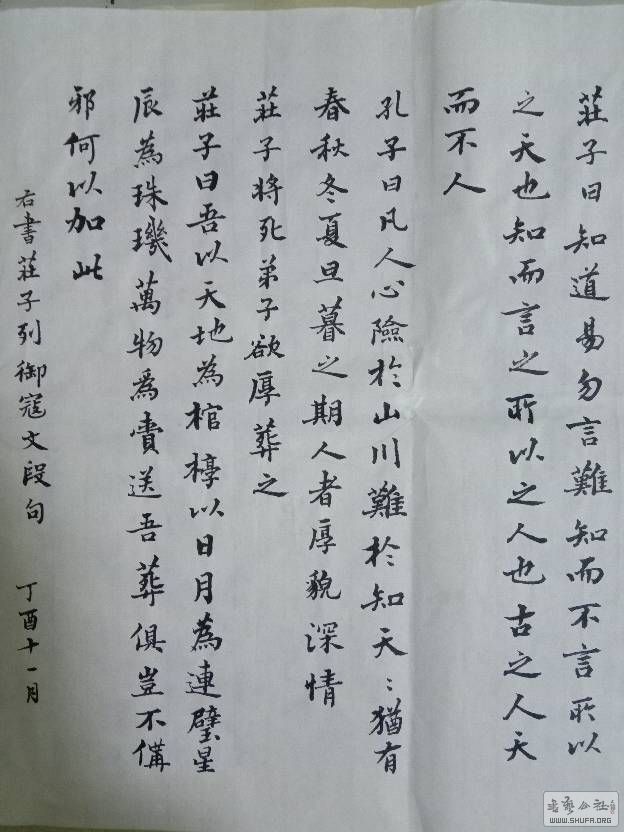 莊子曰知道易勿言難知而不言所以
之天也知而言之所以之人也古之人天
而不人
孔子曰凡人心險於山川難於知天⺀猶有
春秋冬夏旦暮之期人者厚貌深情
莊子將死弟子欲厚葬之
莊子曰吾以天地為棺槨以日月為連璧星
辰為珠璣萬物為賫送吾葬俱豈不備
邪何以加此
右書莊子列御寇文段句 丁酉十一月
WWW.SHUFA.ORG